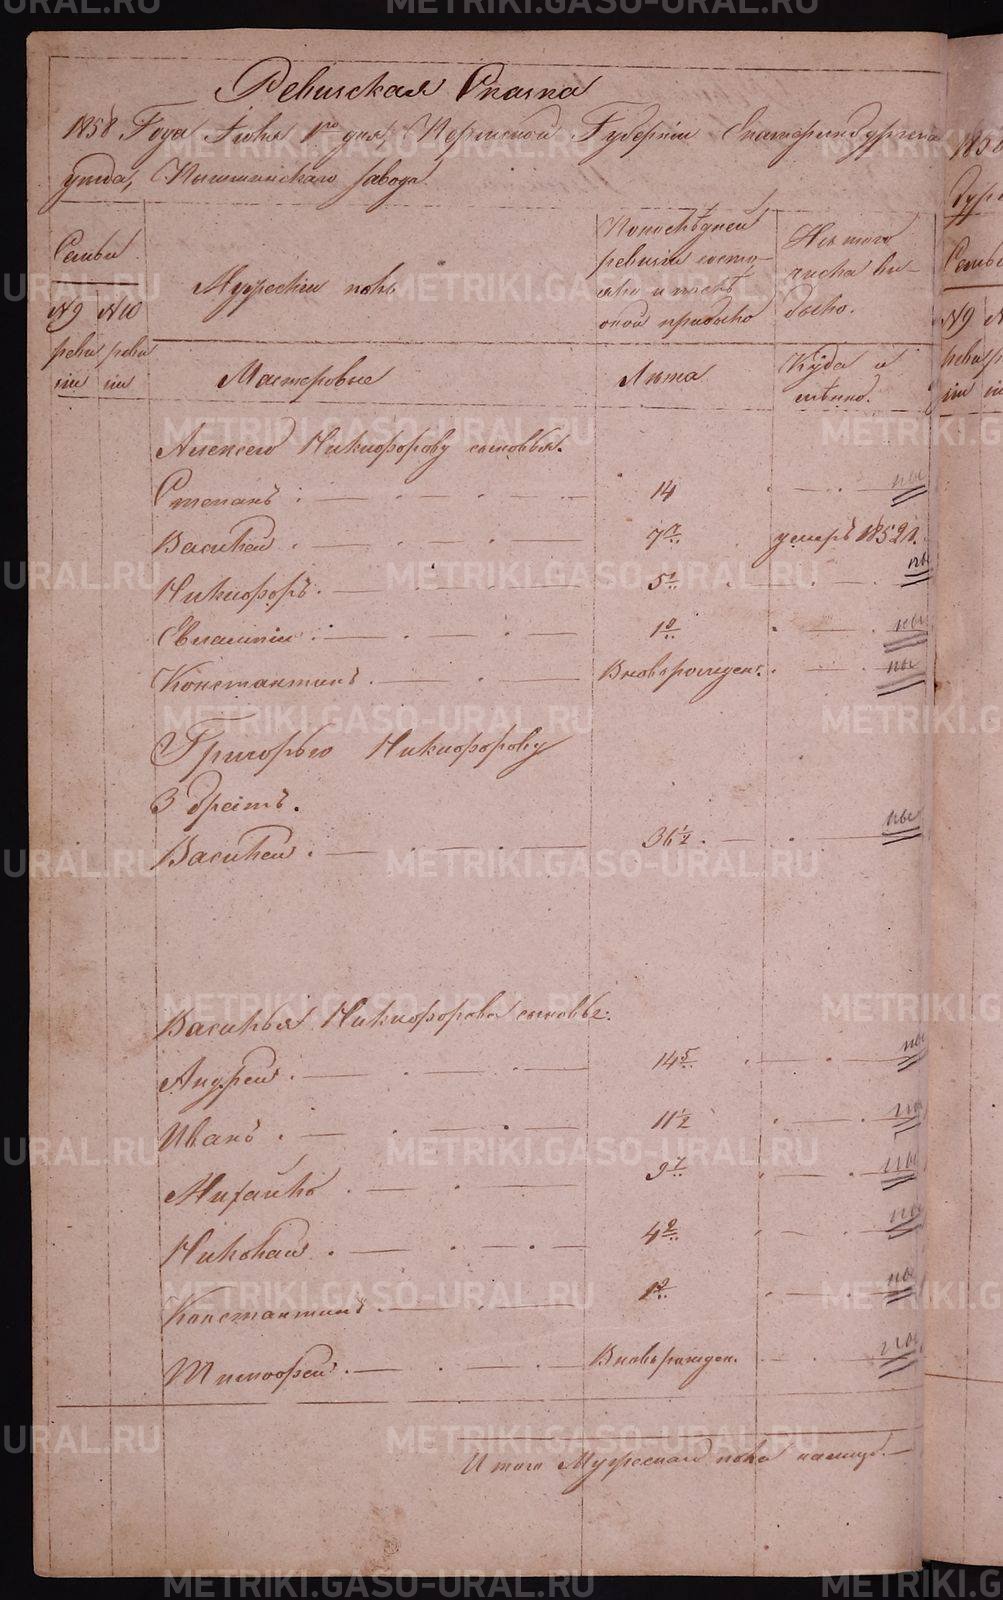 Ревизская Сказка
1858 Года Июня 1го дня Пермской Губернiи Екатеринбургска
уезда, Пышминскаго завода.
Семьи
Мужескiй полъ
По последней
ревизiи состо-
яло и после
оной прибыло
Изъ того
числа вы-
было.
№9 №10
реви реви
зiи зiи
Мастеровые
Лета
Куда и
Алексея Никифорову сыновья.
Степанъ 14 ны
Василей 7 умеръ 1852 г.
Никифоръ 5 ны
Евлампiй 1 ны
Константинъ Вновьрожден. ны
Григорью Никифорову
3 братъ.
Василей 36 1/2 ны
Василья Никифорова сыновье.
Андрей 14 ны
Иванъ 11 1/2 ны
Михайло 9 ны
Николай 4 ны
Константинъ 1 ны
Тимофей Вновьрожден. ны
Итого Мужескаго пола налицо
METRIKI.GASO-URAL.RU